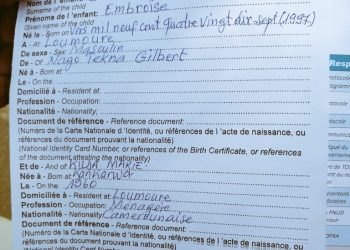 Nom de l'enfant
Surname of the child
Prénoms de l'enfant: Embroise
Given name of the child
Né le - Born on vers mil neuf cent quatre vingt dix-sept (1997)
A - At Loumouré
De sexe - Sex: Masculin
De - Of Nago Tekna Gilbert
Né à - Born at
Le - On the:
Domicilié à - Resident at:
Profession - Occupation:
Nationalité - Nationality:
Document de référence - Reference document:
(Numéro de la Carte Nationale d'Identité, ou références de l'acte de naissance, ou
références du document prouvant la nationalité)
(National Identity Card Number, or references of the Birth Certificate, or references
of the document attesting the nationality)
Et de - And of KILDA MARIE
Née à - Born at Kanharwa
Le - On the: 1960
Domiciliée à - Resident at: Loumouré
Profession - Occupation: Menagère
Nationalité - Nationality Camerounaise
Document de référence - Reference document:
(Numéro de la Carte Nationale d'Identité, ou références de l'acte de naissance, ou
références du document prouvant la nationalité)
Resp